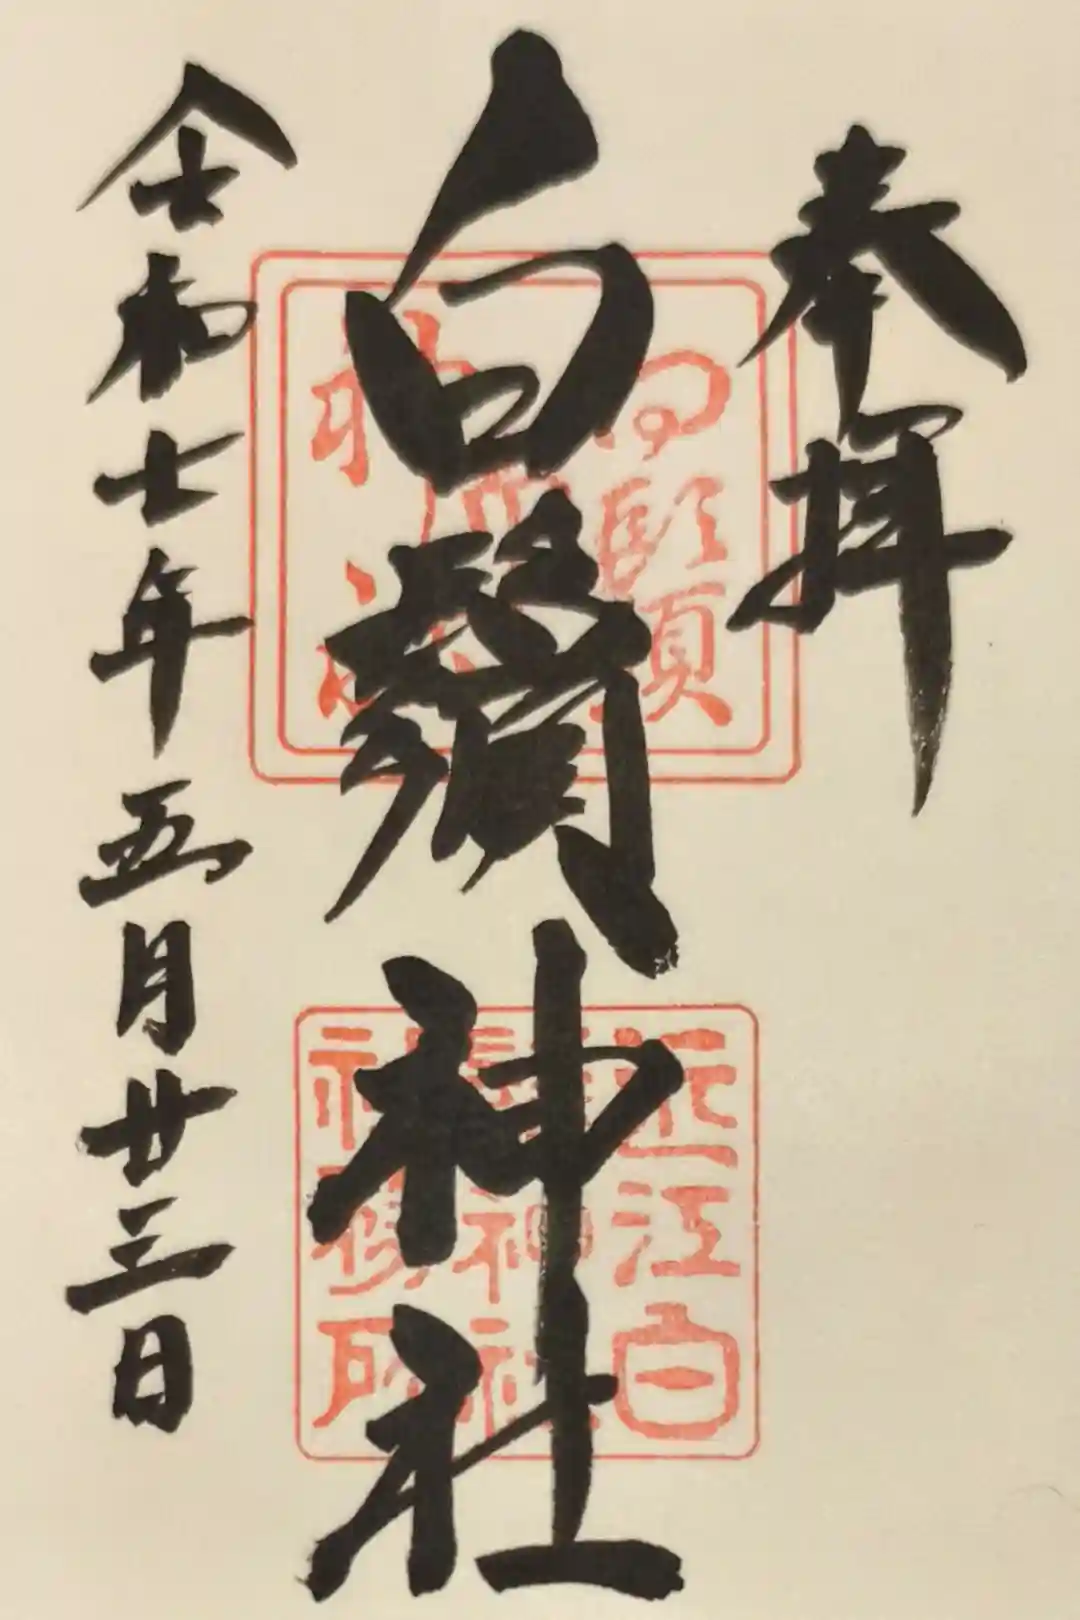 奉拝
白鬚神社
令和七年五月廿三日
近江白
神社
社務所